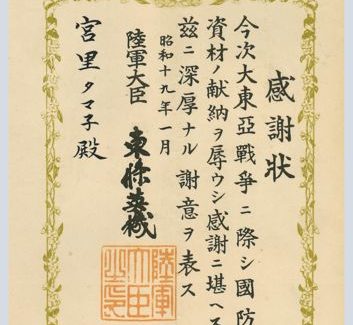 感謝狀
今次大東亞戰爭ニ際シ國防
資材ノ献納ヲ辱ウシ感謝ニ堪ヘス
茲ニ深厚ナル謝意ヲ表ス
昭和十九年一月
陸軍大臣 東條英機
宮里タマ子殿
陸軍大臣之印